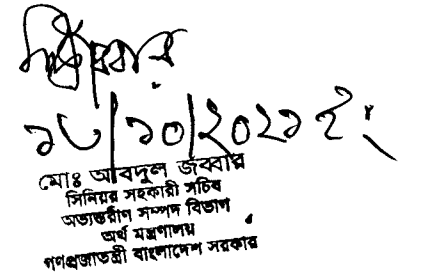 ১৮/১০/২০২১ ইং
মোঃ আবদুল জব্বার
সিনিয়র সহকারী সচিব
অভ্যন্তরীণ সম্পদ বিভাগ
অর্থ মন্ত্রণালয়
গণপ্রজাতন্ত্রী বাংলাদেশ সরকার